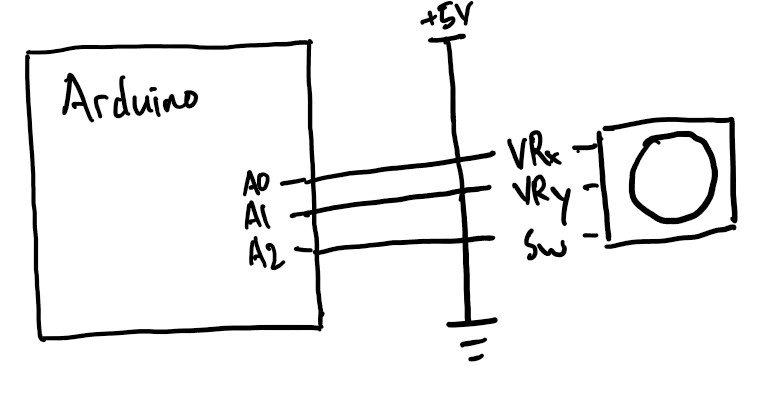 +5V
Arduino
A0
A1
A2
VRx
VRy
SW